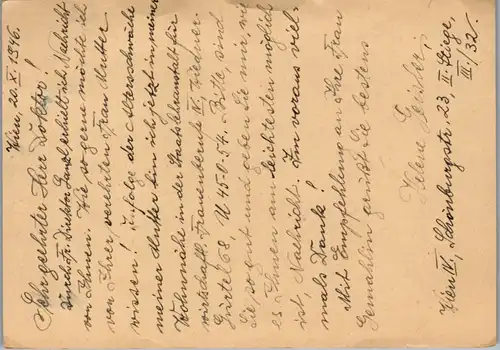 Wien, 20. X. 1946.
Sehr geehrter Herr Doktor!
Durch Fr. Direktor Lanzl erhielt ich Nachricht
von Ihnen. Wie so gerne möchte ich
von Ihrer verehrten Frau Mutter
wissen! Infolge der Altersschwäche
meiner Mutter bin ich jetzt in meiner
Wohnnähe in der Staatslehranstalt für
wirtschaftl. Frauenberufe IV. Wiedner
Gürtel 68. U 45-0-54. Bitte, sind
Sie so gut und geben Sie mir, wie
es Ihnen am leichtesten möglich
ist, Nachricht. Im voraus viel-
mals Dank!
Mit Empfehlung an Ihre Frau
Gemahlin grüßt Sie bestens
Helene
Wien IV, Schönburgstr. 23, II. Stiege,
III./32.